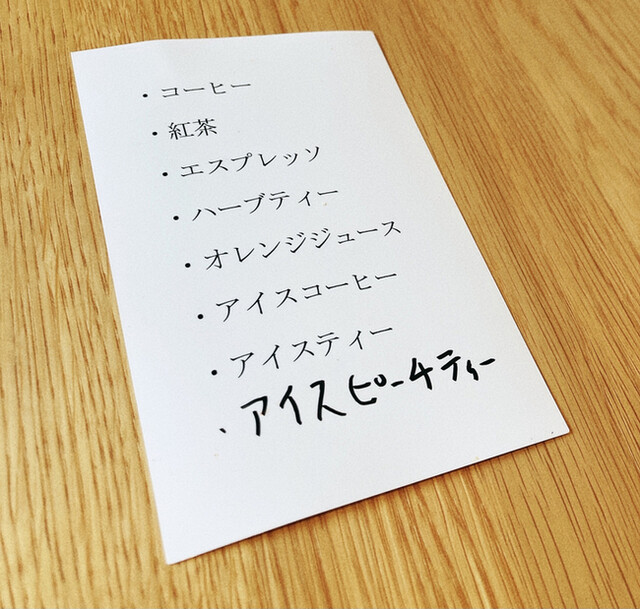 ・コーヒー
・紅茶
・エスプレッソ
・ハーブティー
・オレンジジュース
・アイスコーヒー
・アイスティー
・アイスピーチティー